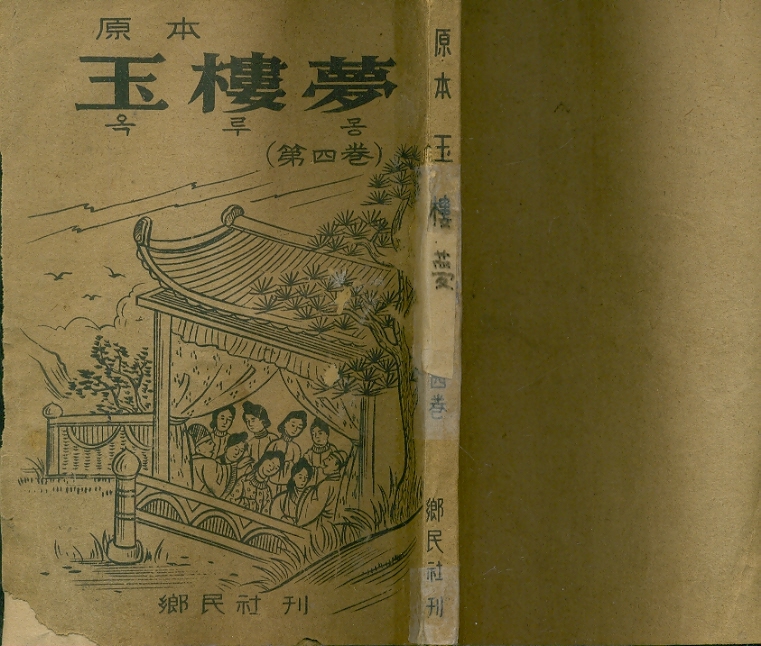 原本
玉樓夢
옥루몽
(第四巻)
鄕民社 刊
原本 玉樓夢
四巻
鄕民社 刊